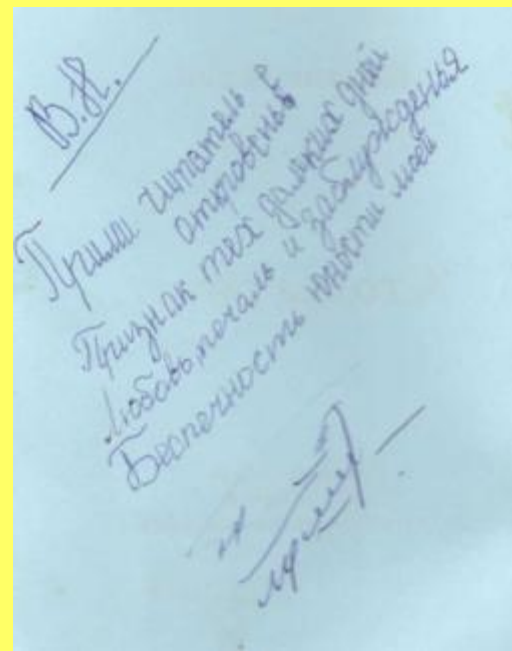 В.Н.
Прими читатель
откровенье
Признак тех далёких дней
Любовь, печаль и заблужденья
Беспечность юности моей